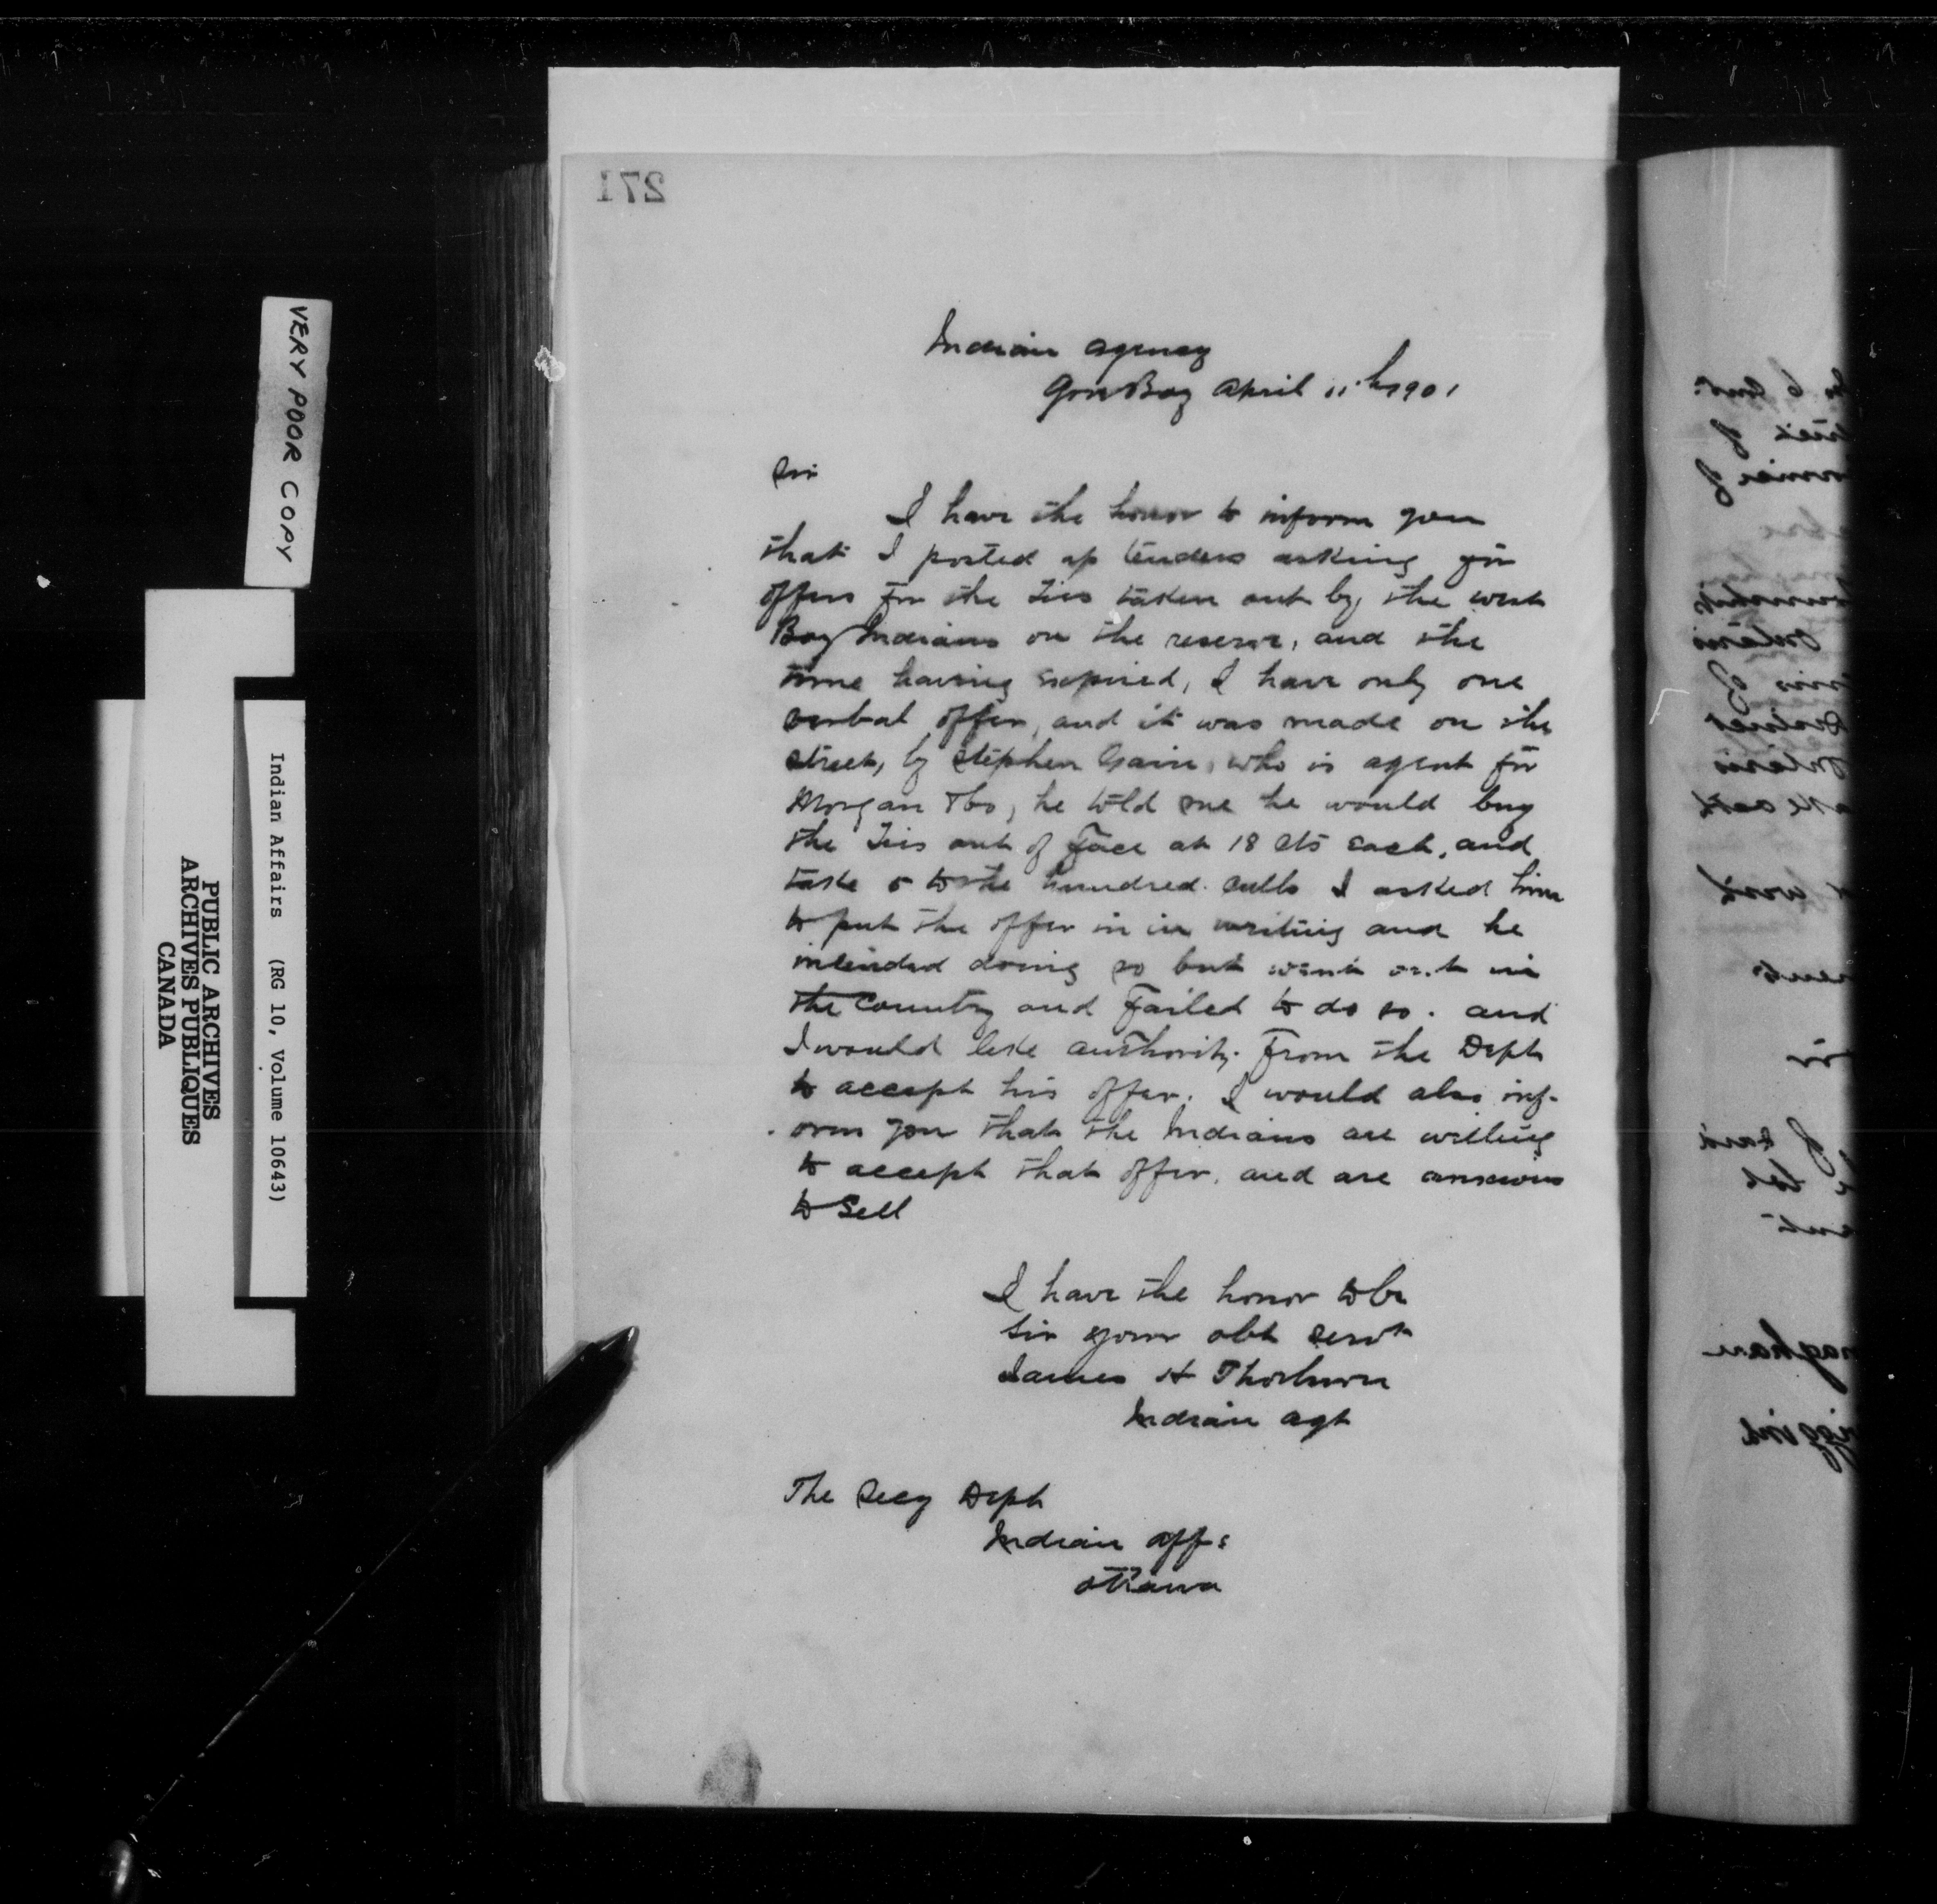 271
Indian Agency
Gore Bay April 11th 1901
Sir
I have the honor to inform you
that I posted up tenders asking for
offers for the Ties taken out by the West
Bay Indians on the reserve, and the
time having expired, I have only one
verbal offer, and it was made on the
street, by Stephen Gain, who is agent for
Morgan Bro, he told me he would buy
the Ties out of Face at 18 cts each, and
take 5 to the hundred culls I asked him
to put the offer in in writing and he
intended doing so but went out in
the Country and Failed to do so. and
I would like authority From the Dept
to accept his offer. I would also inf-
orm you that the Indians are willing
to accept that offer, and are anxious
to Sell
I have the honor to be
Sir your obt servt
James H Thorburn
Indian Agt
The Secy Dept
Indian Aff:
Ottawa
VERY POOR COPY
Indian Affairs (RG 10, Volume 10643)
PUBLIC ARCHIVES
ARCHIVES PUBLIQUES
CANADA